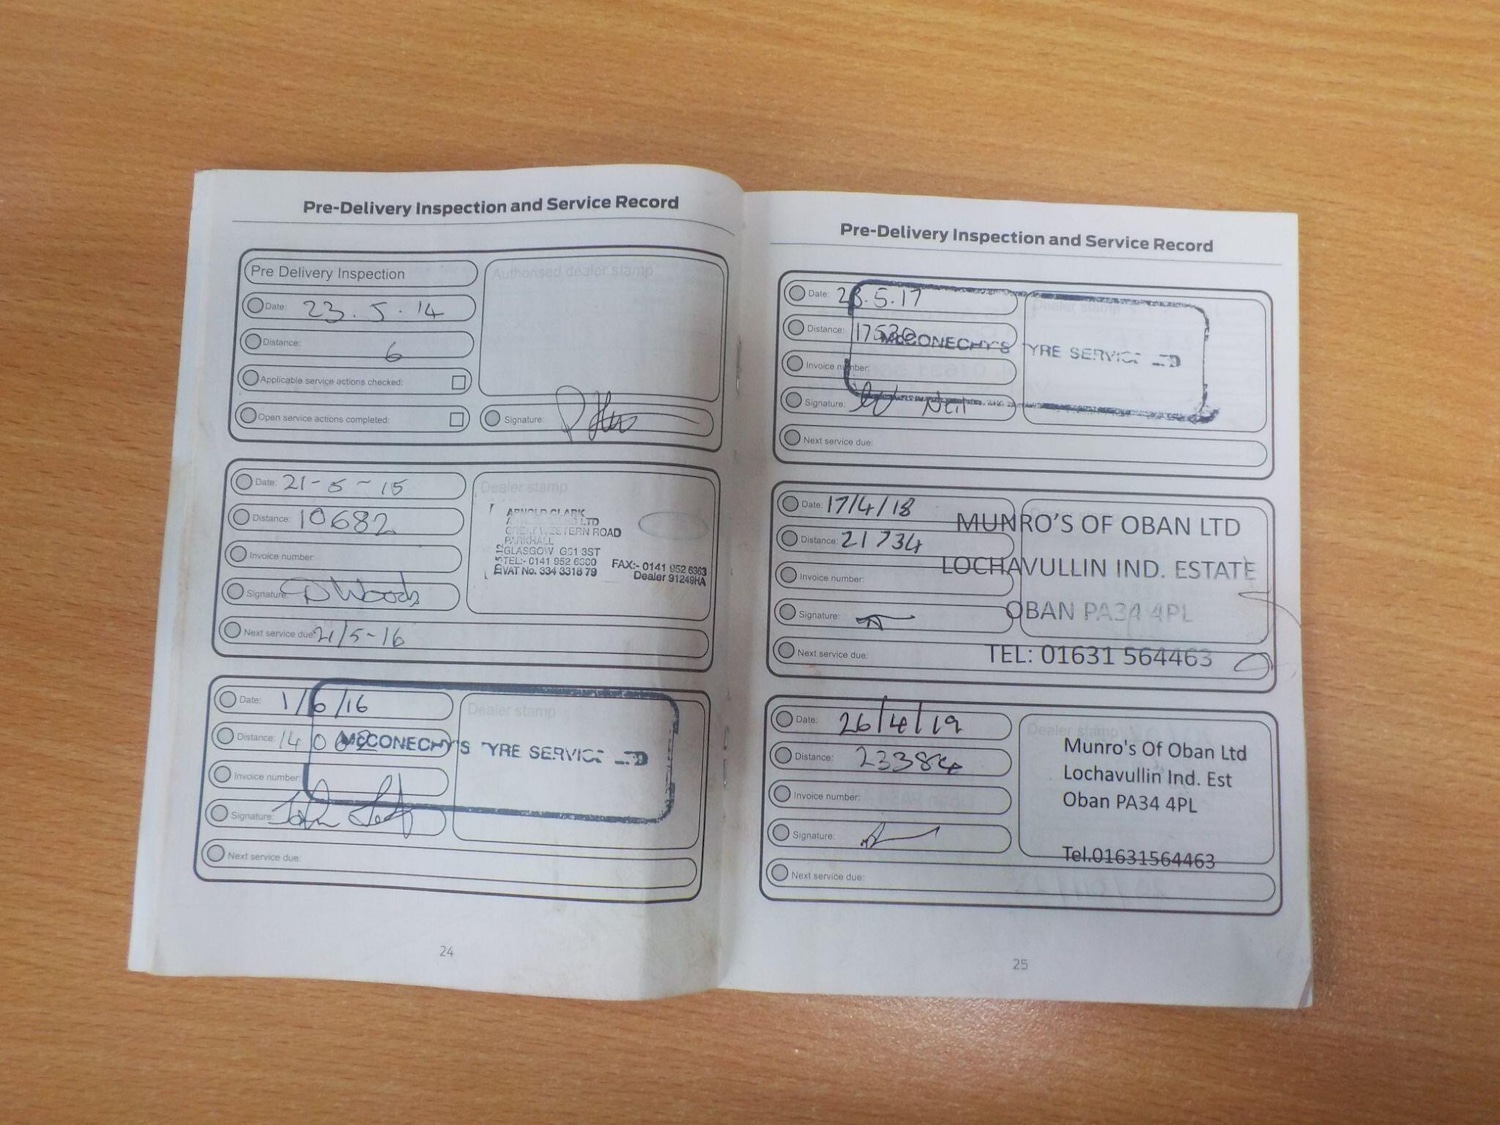 Pre-Delivery Inspection and Service Record
Pre Delivery Inspection
Authorised dealer stamp
Date: 23.5.14
Distance: 6
Applicable service actions checked:
Open service actions completed:
Signature:
Date: 21-5-15
Dealer stamp
Distance: 10682
Invoice number:
Signature: D Woods
Next service due: 21/5-16
ARNOLD CLARK
LTD
GREAT WESTERN ROAD
PARKHALL
GLASGOW G81 3ST
TEL:- 0141 952 6300
FAX:- 0141 952 6363
VAT No. 334 3318 79
Dealer 91249HA
Date: 1/6/16
Dealer stamp
Distance: 14
McCONECHY'S TYRE SERVICE LTD
Invoice number:
Signature:
Next service due:
24
Pre-Delivery Inspection and Service Record
Date: 23.5.17
Dealer stamp
Distance: 17530
McCONECHY'S TYRE SERVICE LTD
Invoice number:
Signature: Neil
Next service due:
Date: 17/4/18
Distance: 21734
Invoice number:
Signature:
Next service due:
MUNRO'S OF OBAN LTD
LOCHAVULLIN IND. ESTATE
OBAN PA34 4PL
TEL: 01631 564463
Date: 26/4/19
Dealer stamp
Distance: 23384
Invoice number:
Signature:
Next service due:
Munro's Of Oban Ltd
Lochavullin Ind. Est
Oban PA34 4PL
Tel.01631564463
25